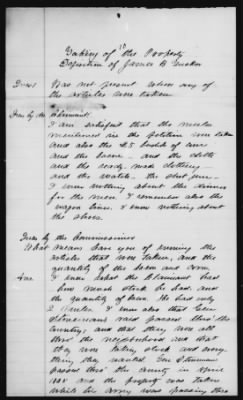 Taking of the Property
Deposition of James B.
Was not present when any of
the articles were taken
Ques by the Claimant
I am satisfied that the mules
mentioned in the petition were taken
and also the 25 bushels of corn
and the bacon - and the cloth
and the ready made clothing -
and the watch - the shot gun -
I know nothing about the dinner
for the men. I remember also the
wagon lines. I know nothing about
the shoes.
Ques by the Commissioner
What means have you of knowing the
articles that were taken, and the
quantity of the bacon and corn.
Ans
I knew what the Claimant had
how much stock he had and
the quantity of bacon. He had only
2 mules. I know also that Gen
men passed thro' the
Country, and that they were all
thro' the neighborhood and that
they were taking stock and every
thing they wanted. Gen Stoneman
passed thro' the County in April
1865 and the property was taken
while his army was passing thro